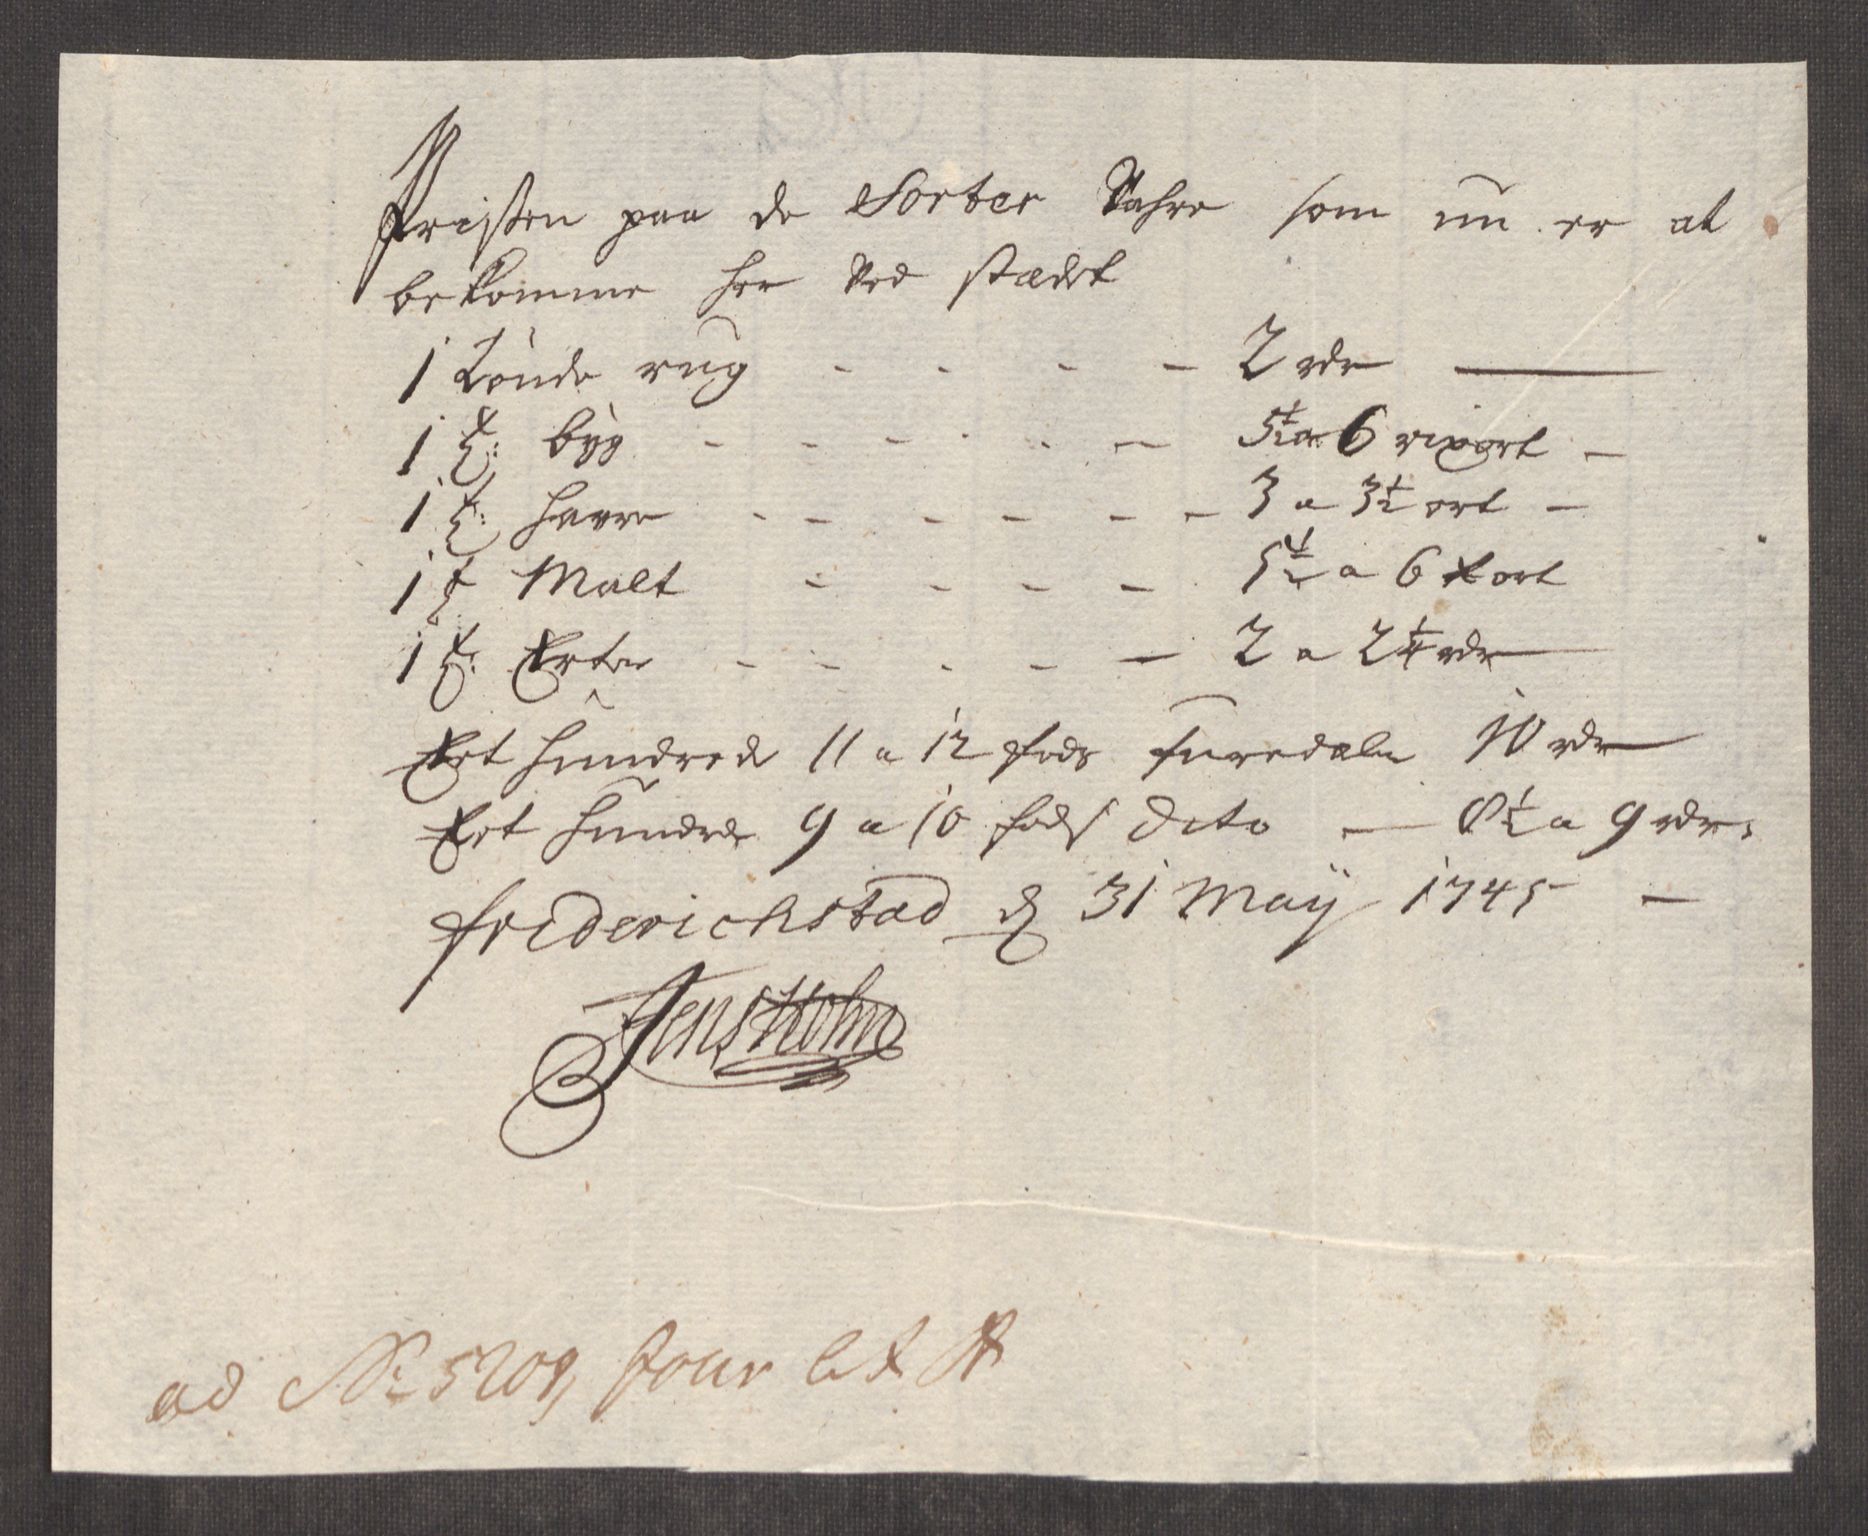 Prissen paa de Sorter Vahre som nu er at
bekomme her Ved stædet
1 Tønde rug - - - - 2 rdr
1 T: byg - - - - - - 5½ a 6 rixort -
1 T: havre - - - - - - 3 a 3½ ort -
1 T Malt - - - - 5½ a 6 ort
1 T: Erter - - - - - 2 a 2¼ rdr
Eet hundrede 11 a 12 fods furedæler 10 rdr
Eet hundrede 9 a 10 fods Dito - 8½ a 9 rdr.
friderichstad d 31 Maij 1745 -
Jens Holm
ad No 5209, Jour Lit A